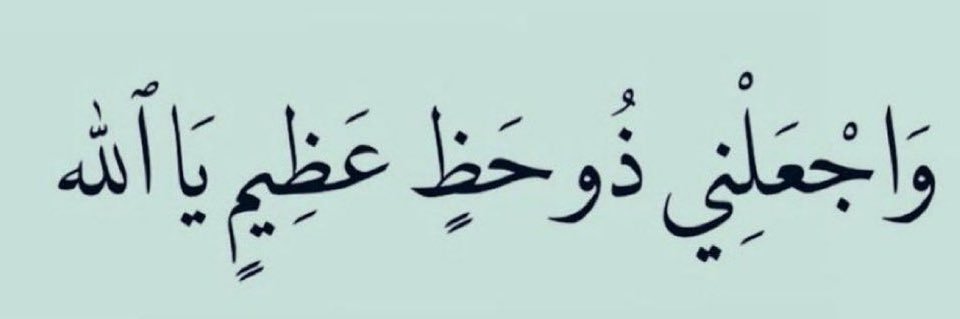 وَاجْعَلْنِي ذُو حَظٍ عَظِيمٍ يَا ٱلله